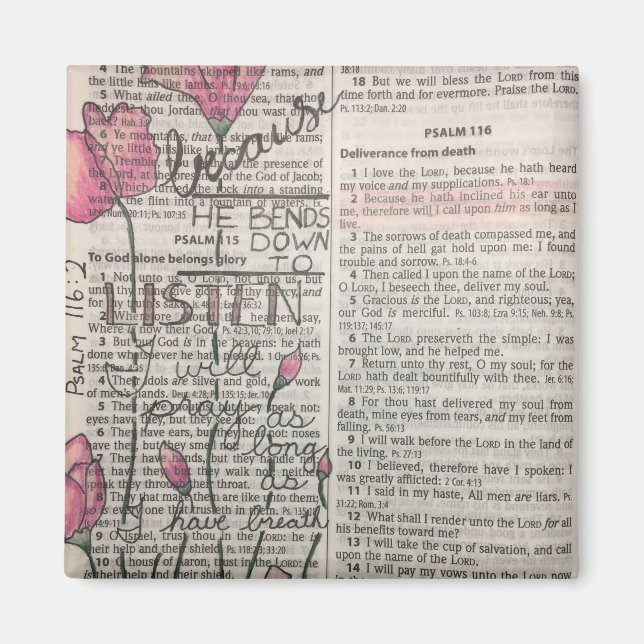 4 The mountains skipped like rams, and
the little hills like lambs. Ps. 29:6; 68:16
5 What ailed thee, O thou sea, that thou
thou Jordan, that thou wast
back? Hab. 3:
6 Ye mountains, that ye skipped like rams;
and ye little hills, like
7 Tremble, thou earth, at the presence of
the Lord, at the presence of the God of Jacob;
8 Which turned the rock into a standing
water, the flint into a fountain of waters. Ex.
17:6; Num. 20:11; Ps. 107:35
because
HE BENDS
DOWN
TO
LISTEN
I will
pray as
long
as
I have breath
PSALM 116:2
PSALM 115
To God alone belongs glory
1 Not unto us, O LORD, not unto us, but
unto thy name give glory, for thy mercy, and
for thy truth's sake. Ex 36:32
2 Wherefore should the heathen say,
Where is now their God? Ps. 42:3, 10; 79:10; Joel 2:17
3 But our God is in the heavens: he hath
done whatsoever he hath pleased. 1 Chr 16:26; Ps.
135:6; Dan. 4:35
4 Their idols are silver and gold, the work
of men's hands. Deut. 4:28; Ps. 135:15; Jer. 10
5 They have mouths, but they speak not:
eyes have they, but they see not:
6 They have ears, but they hear not: noses
have they, but they smell not:
7 They have hands, but they handle not:
feet have they, but they walk not: neither
speak they through their throat.
8 They that make them are like unto them;
so is every one that trusteth in them. Ps.
44:9-11
9 O Israel, trust thou in the LORD: he is
their help and their shield. Ps. 118:2; 33:20
10 O house of Aaron, trust in the LORD: he
is their help and their shield.
38:18
18 But we will bless the LORD from this
time forth and for evermore. Praise the LORD.
Ps. 113:2; Dan. 2:20
PSALM 116
Deliverance from death
1 I love the LORD, because he hath heard
my voice and my supplications. Ps. 18:1
2 Because he hath inclined his ear unto
me, therefore will I call upon him as long as I
live.
3 The sorrows of death compassed me, and
the pains of hell gat hold upon me: I found
trouble and sorrow. Ps. 18:4-6
4 Then called I upon the name of the LORD;
O LORD, I beseech thee, deliver my soul.
5 Gracious is the LORD, and righteous; yea,
our God is merciful. Ps. 103:8; Ezra 9:15; Neh. 9:8; Ps.
119:137; 145:17
6 The LORD preserveth the simple: I was
brought low, and he helped me.
7 Return unto thy rest, O my soul; for the
LORD hath dealt bountifully with thee. Jer. 6:16;
Mat. 11:29; Ps. 13:6; 119:17
8 For thou hast delivered my soul from
death, mine eyes from tears, and my feet from
falling. Ps. 56:13
9 I will walk before the LORD in the land of
the living. Ps. 27:13
10 I believed, therefore have I spoken: I
was greatly afflicted: 2 Cor. 4:13
11 I said in my haste, All men are liars. Ps.
31:22; Rom. 3:4
12 What shall I render unto the LORD for all
his benefits toward me?
13 I will take the cup of salvation, and call
upon the name of the LORD.
14 I will pay my vows unto the LORD now